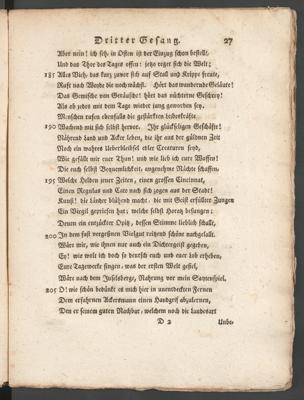 Dritter Gesang. 27
Aber nein! ich seh, in Osten ist der Einzug schon bestellt,
Und das Thor des Tages offen: jetzo reget sich die Welt;
185 Alles Vieh, das kurz zuvor sich auf Stall und Krippe freute,
Ruft nach Weyde die noch nächst. Hört das wandernde Geläute!
Das Gemische von Geräusche! hört das nüchterne Geschrey!
Als ob jedes mit dem Tage wieder jung geworden sey,
Menschen rufen ebenfalls die gestärkten Leibeskräfte
190 Wachend mit sich selbst hervor. Ihr glückseligen Geschäfte!
Nährung Land und Aecker leben, die ihr aus der güldnen Zeit
Noch ein wahres Ueberbleibsel edler Creaturen seyd,
Wie gefällt mir euer Thun! und wie lieb ich eure Waffen!
Die euch selbst Bequemlichkeit, angenehme Nächte schaffen,
195 Welche Helden jener Zeiten, einen grossen Cincinnat,
Einen Regulus und Cato nach sich zogen aus der Stadt!
Kunst! die Länder blühend macht, die mit Geist erfüllter Zungen
Ein Virgil gepriesen hat; welche selbst Horaz besungen;
Denen ein entzückter Opitz, dessen Stimme lieblich schallt,
200 In dem fast vergeßnen Vielgut reitzend schöne nachgelallt.
Wäre mir, wie ihnen nur auch ein Dichtergeist gegeben,
Ey! wie wolt ich doch so deutsch euch und euer Lob erheben,
Eure Tagewerke singen; was der ersten Welt gefiel,
Wäre nach dem Jubelberge, Nahrung vor mein Saytenspiel.
205 O! wie schön bedünkt es mich hier in unentdeckten Fernen
Dem erfahrnen Ackersmann einen Handgrif abzulernen,
Den er seinem guten Nachbar, welchem noch die Landesart
D 2 Unbe-